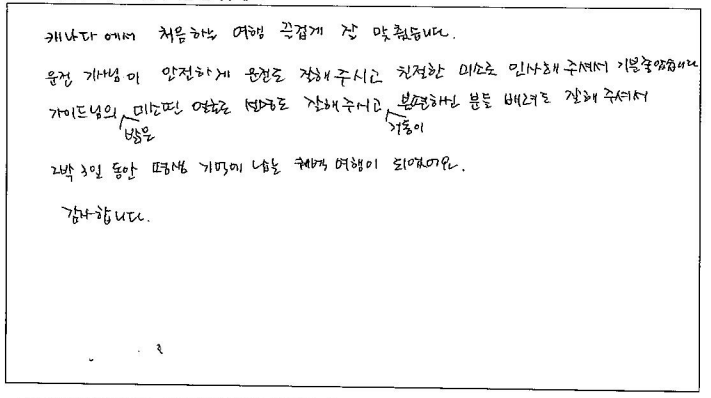 캐나다에서 처음하는 여행 즐겁게 잘 맞췄습니다.
운전 기사님이 안전하게 운전도 잘해주시고 친절한 미소로 인사해 주셔서 기분좋았습니다
가이드님의 밝은 미소띤 얼굴로 설명도 잘해주시고 거동이 불편하신 분들 배려도 잘해 주셔서
2박 3일 동안 평생 기억에 남는 여행이 되었어요.
감사합니다.